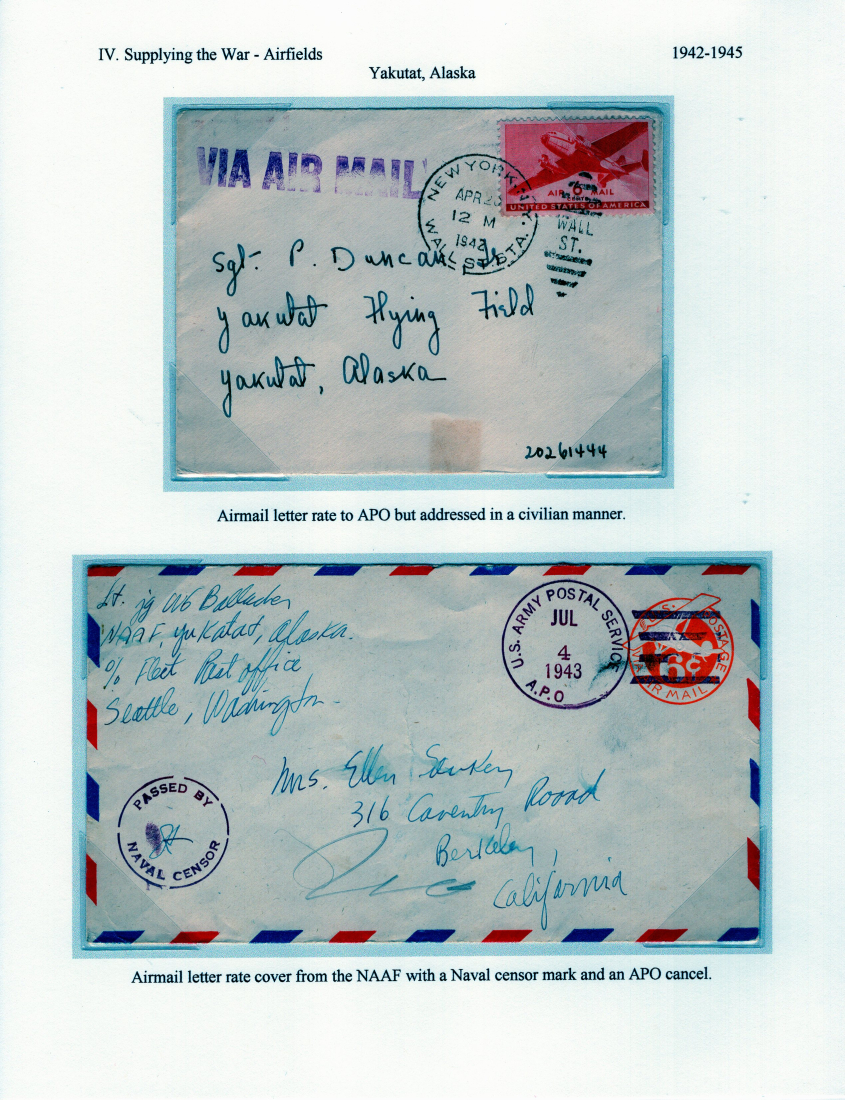 IV. Supplying the War - Airfields
1942-1945
Yakutat, Alaska
VIA AIR MAIL
NEW YORK, N.Y.
APR 23
12 M
1942
WALL ST. STA.
AIR 6 MAIL
CENTS
UNITED STATES OF AMERICA
WALL
ST.
Sgt. P. Duncan Jr.
Yakutat Flying Field
Yakutat, Alaska
20261444
Airmail letter rate to APO but addressed in a civilian manner.
Lt. jg
NAAF, Yukatat, Alaska.
% Fleet Post office
Seattle, Washington.
U.S. ARMY POSTAL SERVICE
JUL
4
1943
A.P.O
U.S. POSTAGE
6¢
AIR MAIL
Mrs. Ellen
316 Coventry Road
Berkeley,
California
PASSED BY
NAVAL CENSOR
Airmail letter rate cover from the NAAF with a Naval censor mark and an APO cancel.